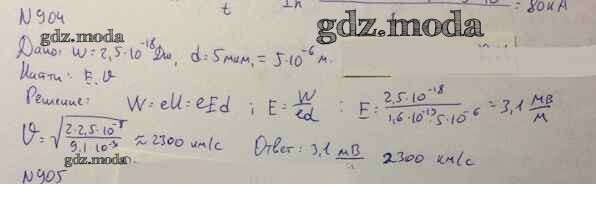 N904
gdz.moda
Дано: W = 2,5·10⁻¹⁸ Дж, d = 5 мкм, = 5·10⁻⁶ м.
Найти: E, υ
Решение: W = eU = eEd ; E = W/ed ; E = 2,5·10⁻¹⁸/1,6·10⁻¹⁹·5·10⁻⁶ = 3,1 МВ/м
υ = √(2·2,5·10⁻¹⁸/9,1·10⁻³¹) ≈ 2300 км/с Ответ: 3,1 МВ/м 2300 км/с
gdz.moda
N905